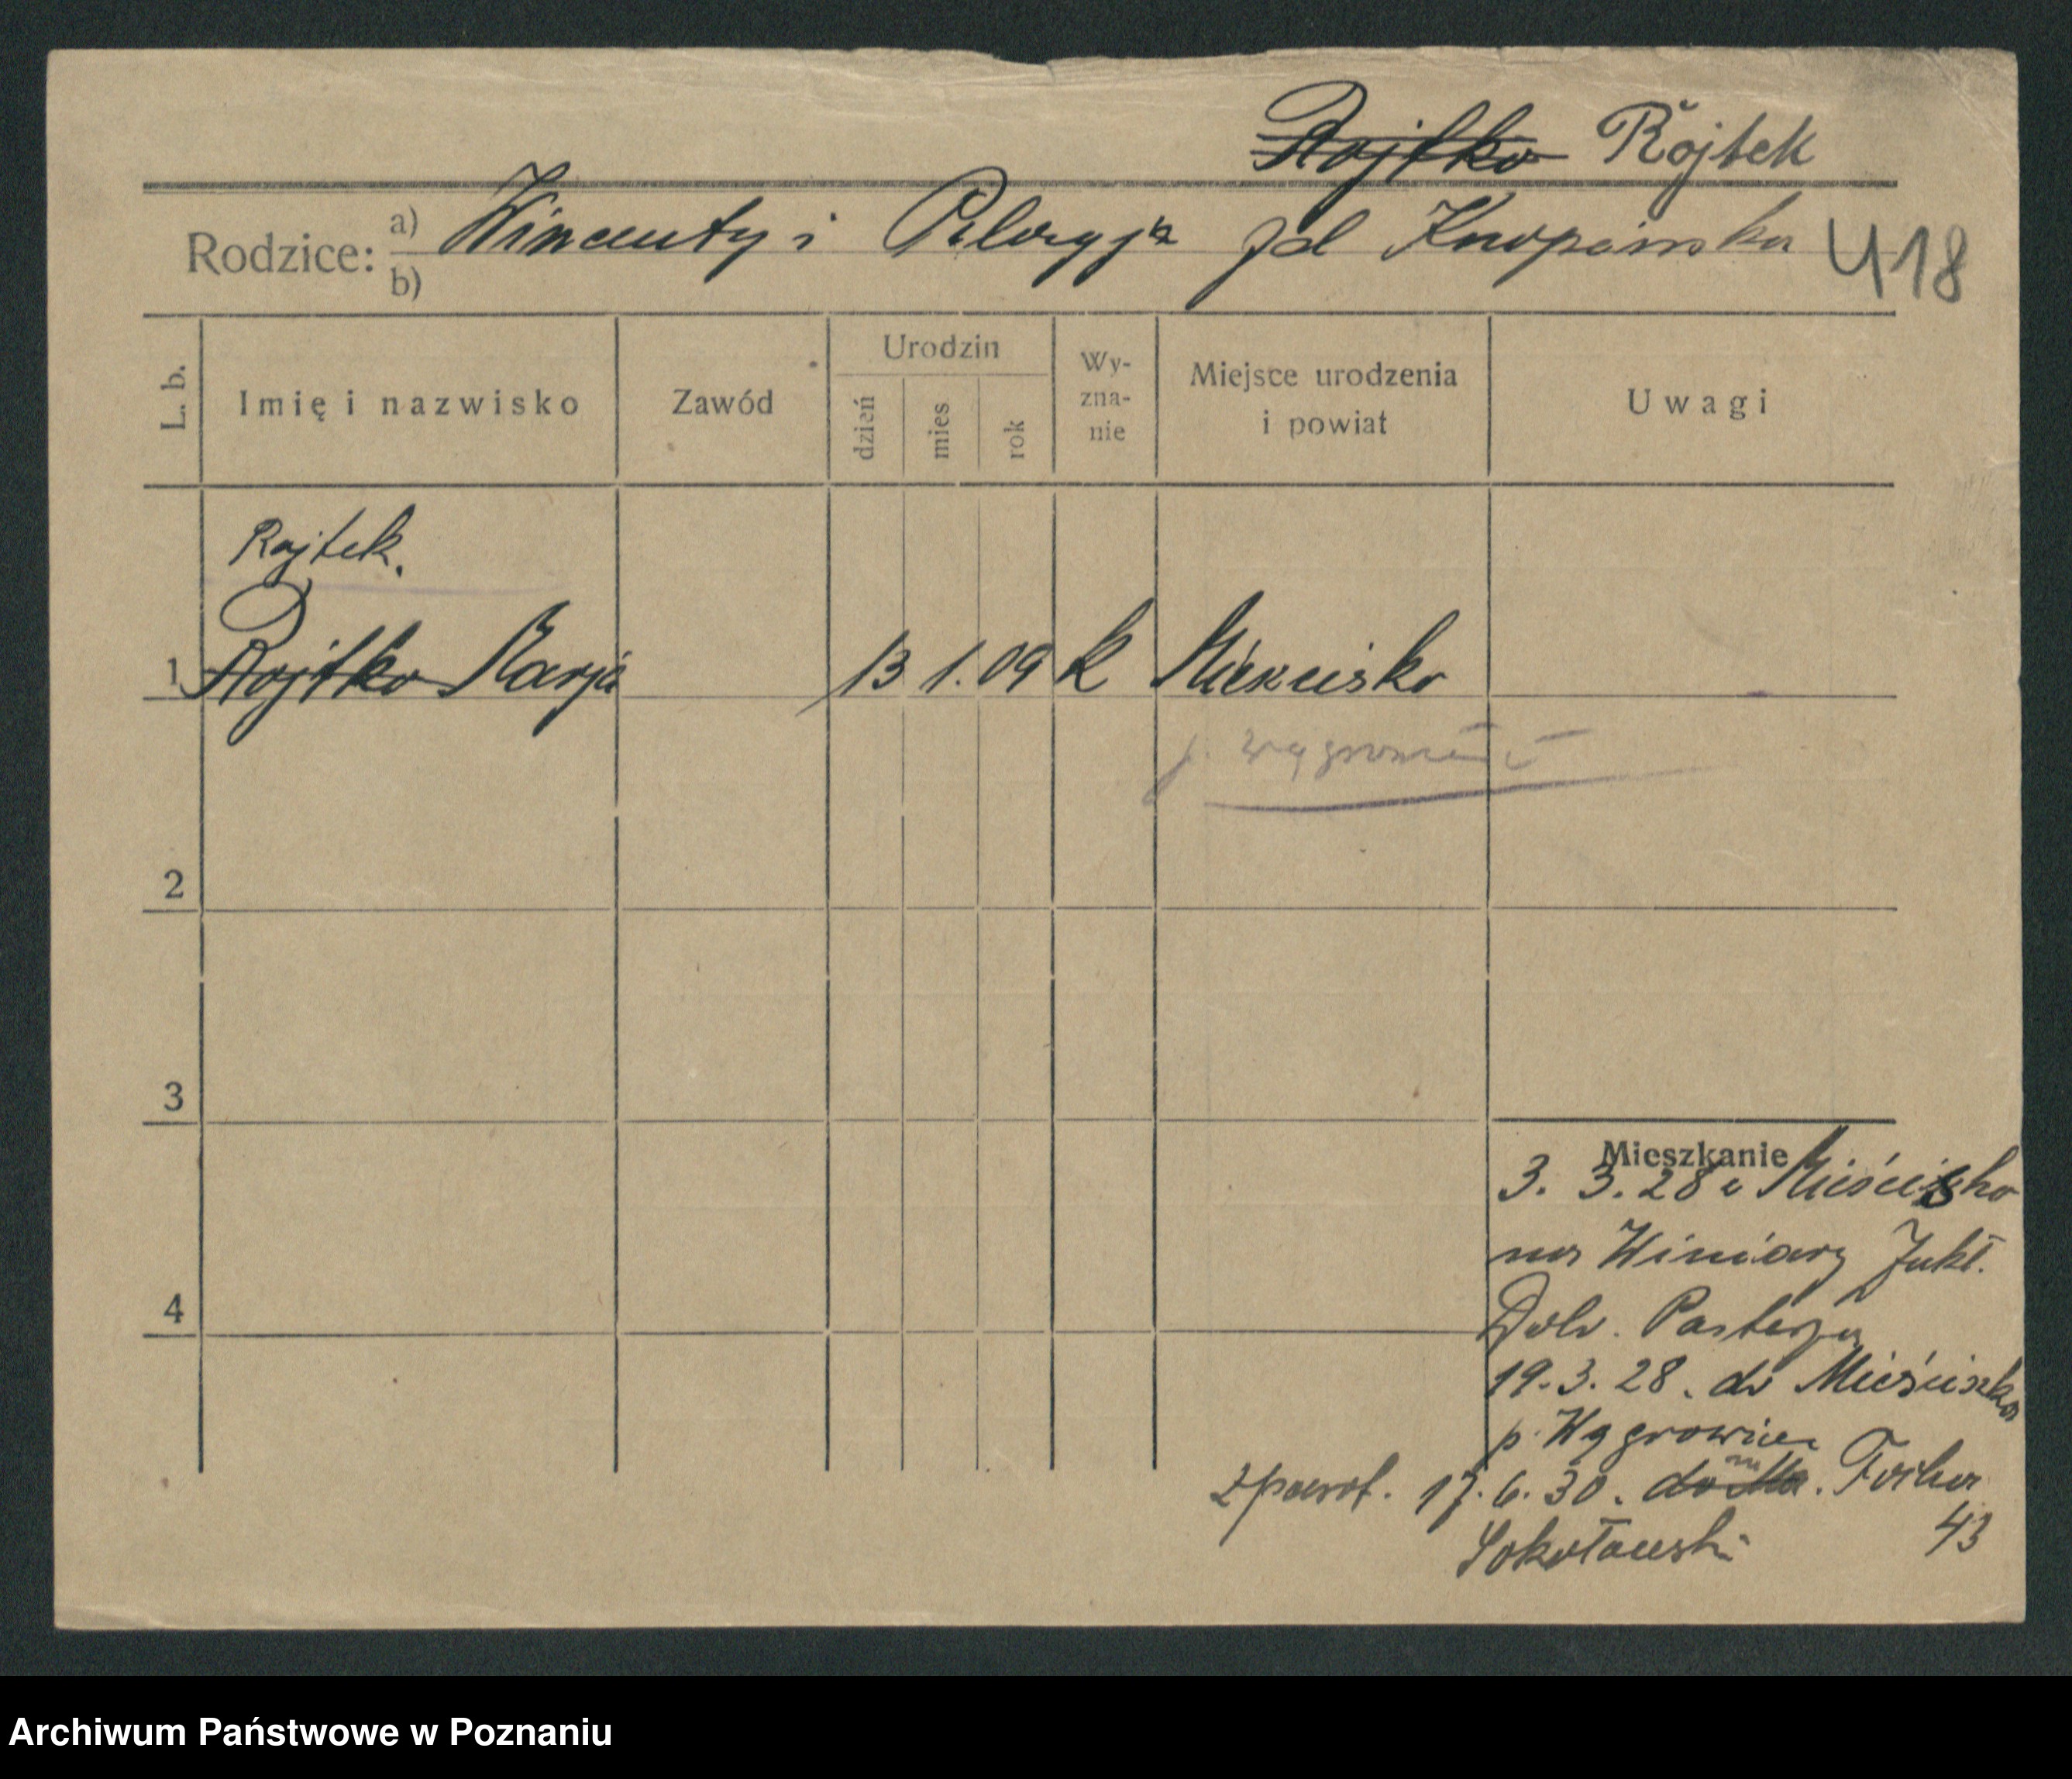 Rojtko Rojtek
Rodzice: a) Wincenty i Pelagja zd
b)
418
L. b.
Imię i nazwisko
Zawód
Urodzin
dzień
mies
rok
Wy-
zna-
nie
Miejsce urodzenia
i powiat
Uwagi
Rojtek.
1 Rojtko Marja 13 1. 09 k Mieścisko
p.
2
3
4
Mieszkanie
3. 3. 28 z Mieścisko
na Winiary
Dolv. Pasterza
19. 3. 28. do Mieściska
p. Wągrowiec
zpowrot. 17. 6. 30. do
Sokołowski 43
Archiwum Państwowe w Poznaniu